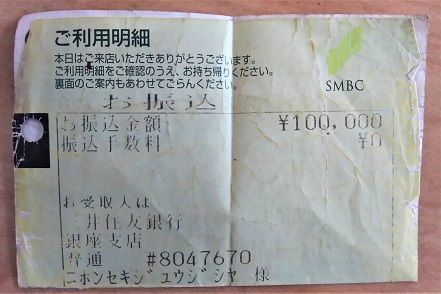 ご利用明細
本日はご来店いただきありがとうございます。
ご利用明細をご確認のうえ、お持ち帰りください。
裏面のご案内もあわせてごらんください。
SMBC
お振込
お振込金額 ¥100,000
振込手数料 ¥0
お受取人は
三井住友銀行
銀座支店
普通 #8047670
ニホンセキジユウジシヤ 様